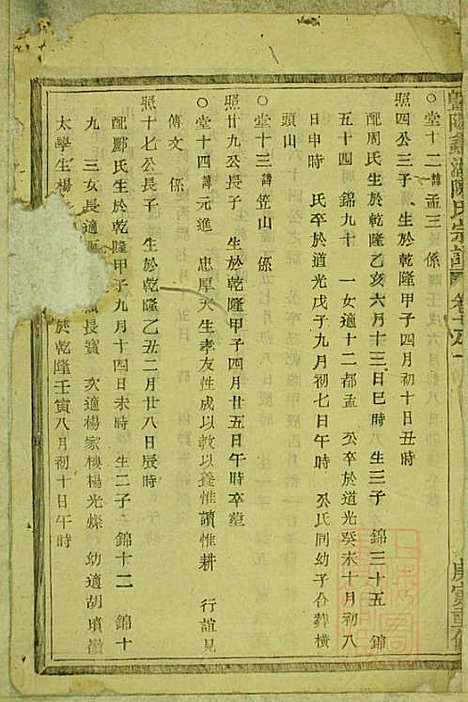 暨陽 湄陳氏宗譜 卷
庚寅重修
○堂十二 諱孟三 係
照四公三子 生於乾隆甲子四月初十日丑時
配周氏生於乾隆乙亥六月十三日巳時 生三子 錦三十五 錦
五十四 錦九十 一女適十二都孟 公卒於道光癸未十月初八
日申時 氏卒於道光戊子九月初七日午時 公氏同幼子合葬橫
頭山
○堂十三 諱笠山 係
照廿九公長子 生於乾隆甲子四月廿五日午時卒塟
○堂十四 諱元進 忠厚天生孝友性成以敎以養惟讀惟耕 行誼見
傳文 係
照十七公長子 生於乾隆乙丑二月廿八日辰時
配酈氏生於乾隆甲子九月十四日未時 生二子 錦十二 錦十
九 三女長適 長賓 次適楊家樓楊光燦 幼適胡墳嶺
太學生楊 於乾隆壬寅八月初十日午時